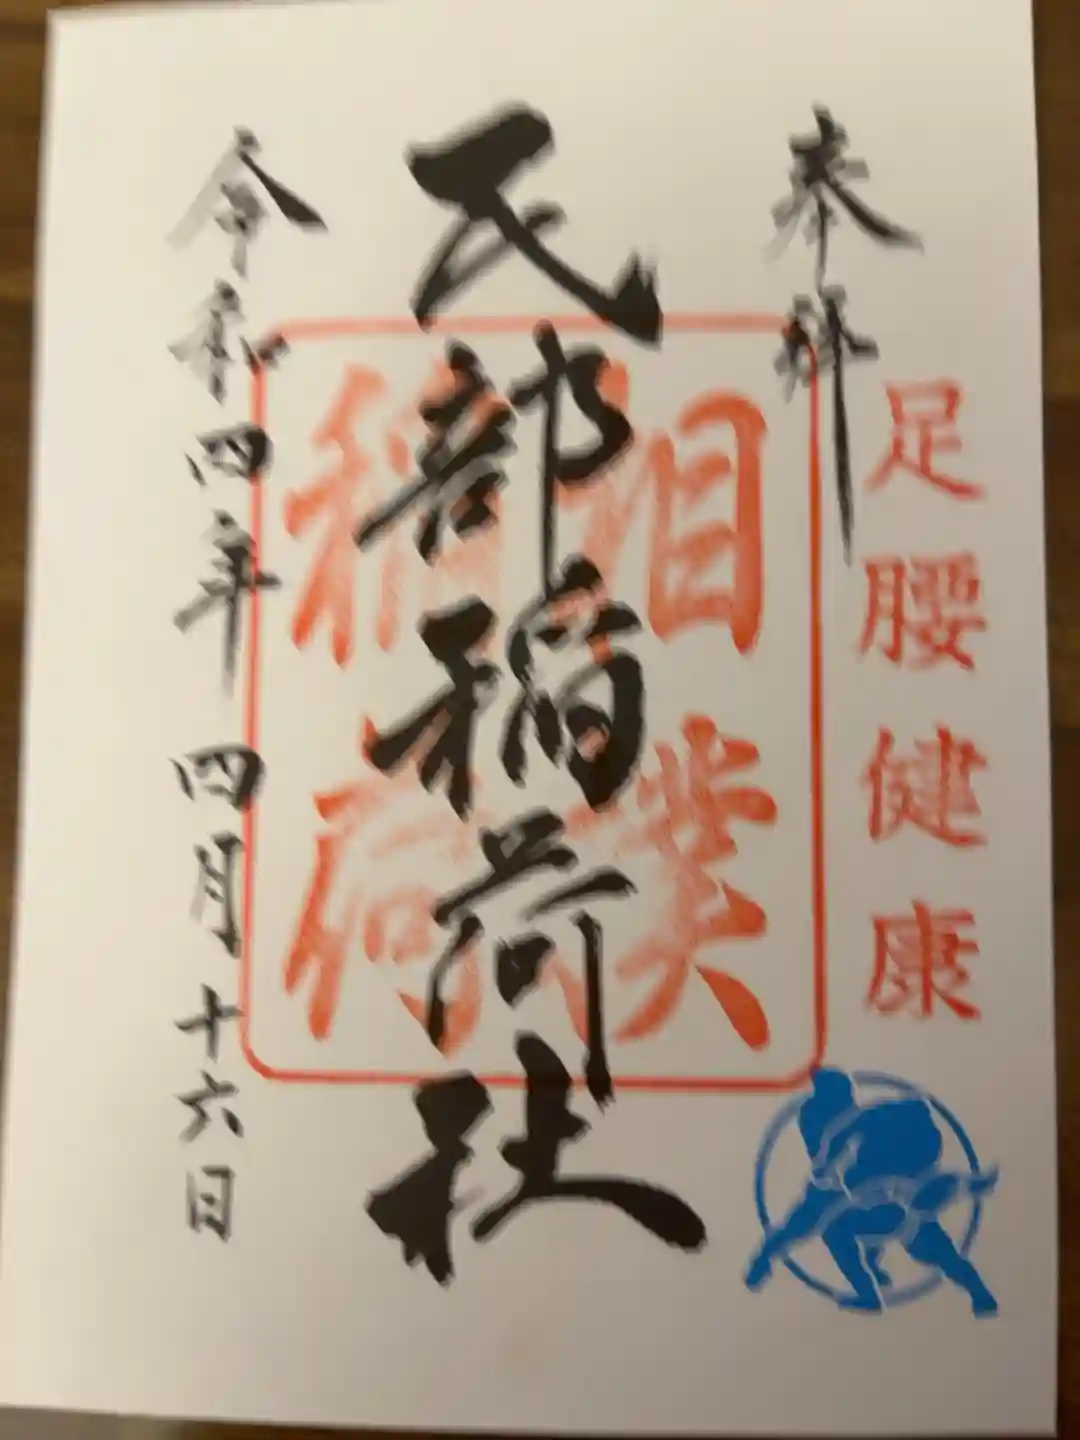 奉拝
足腰健康
民部稲荷社
相撲
稲荷
令和四年 四月十六日